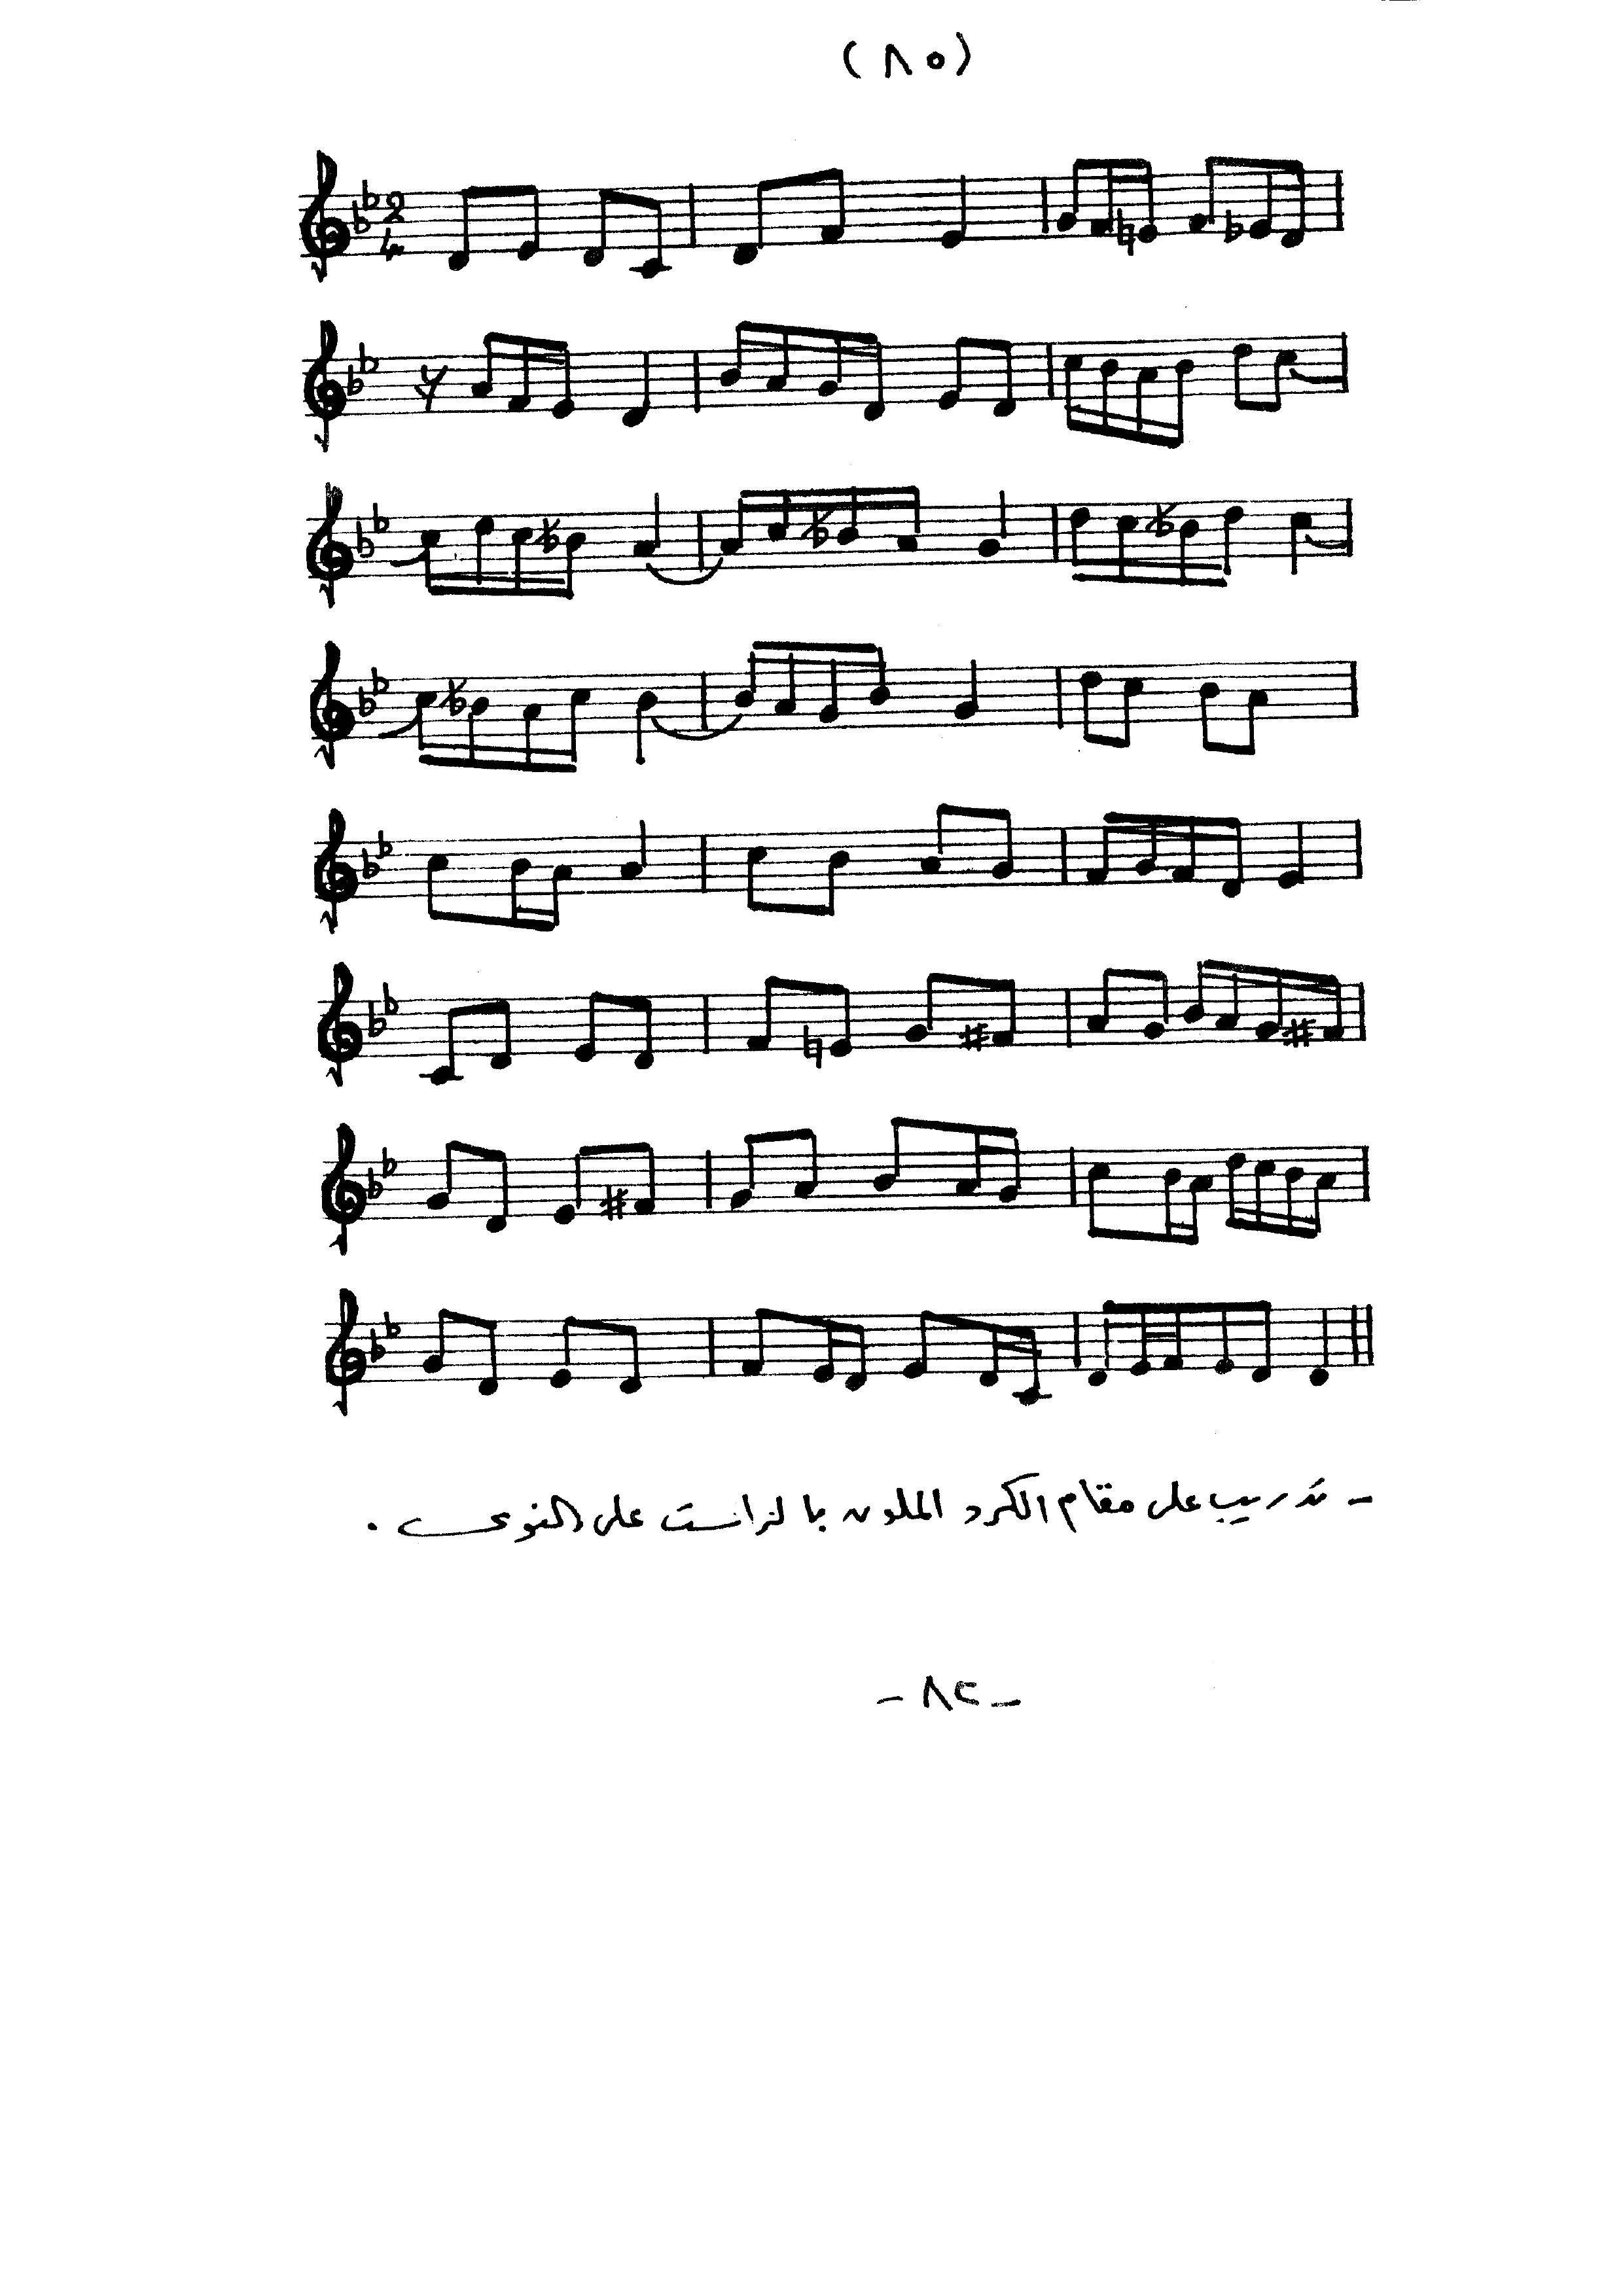 (٨٥)
2
4
- تدريب على مقام الكرد الملون بالراست على النوى .
- ٨٢ -